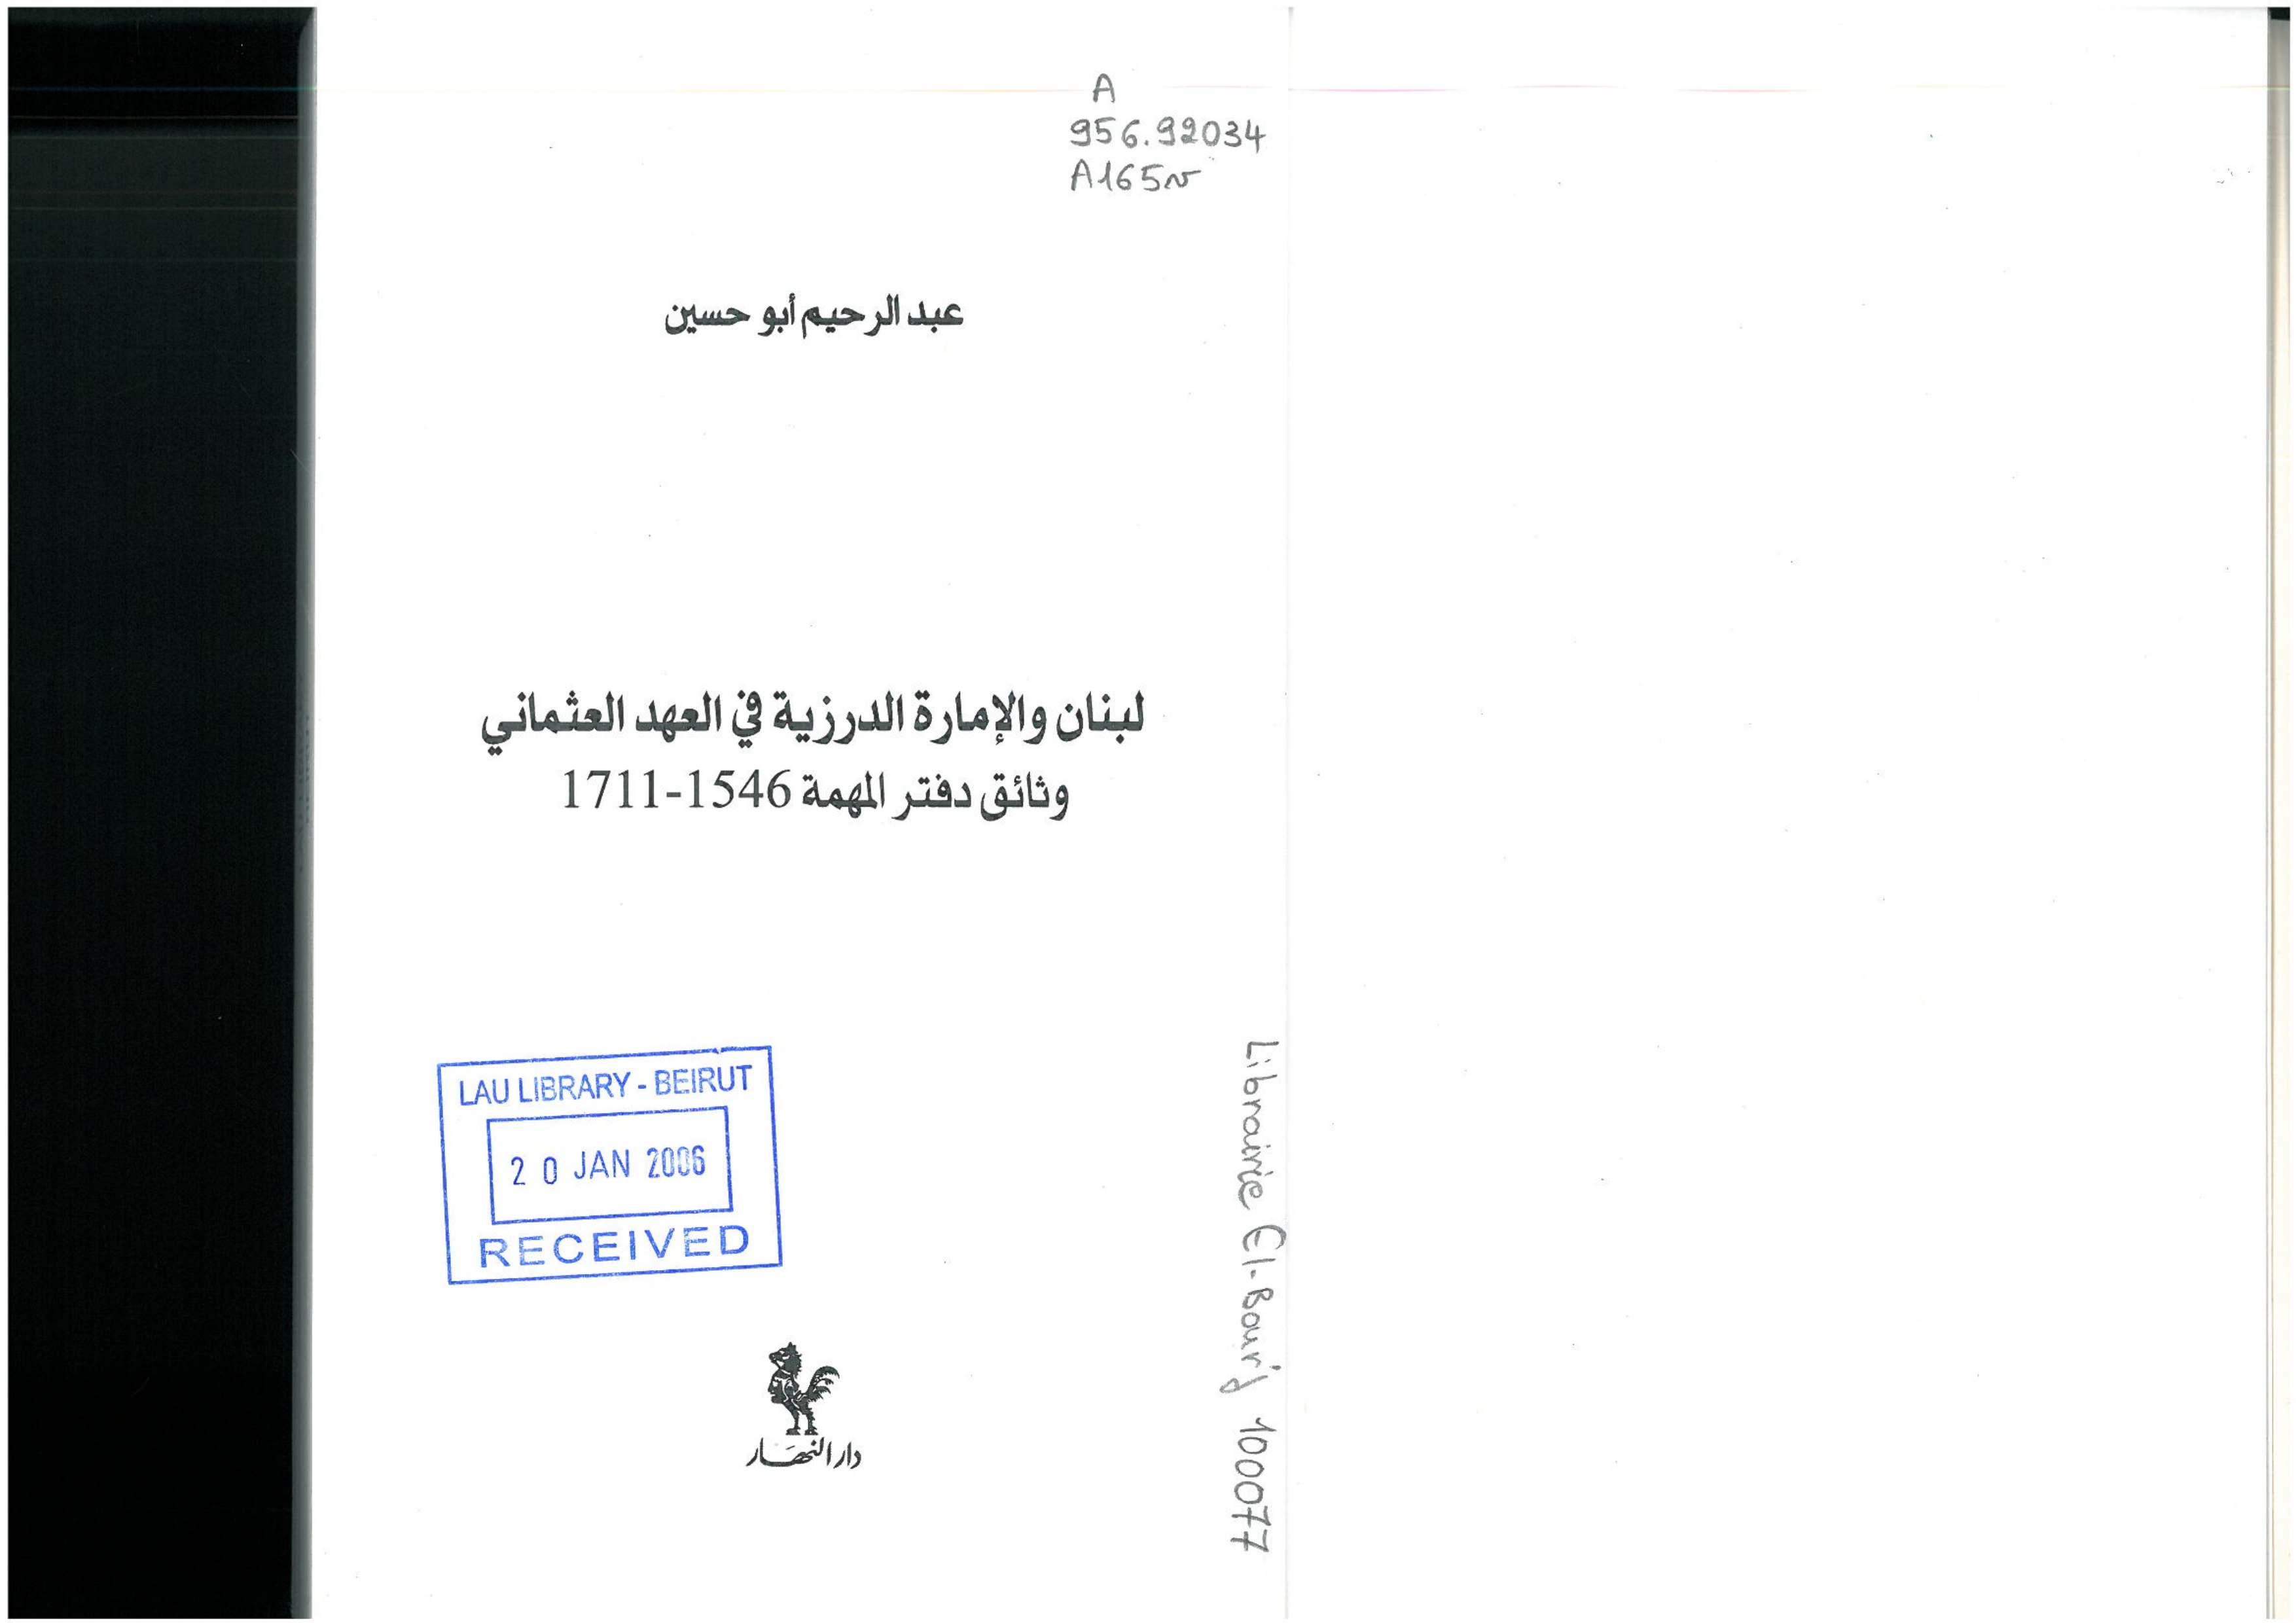 A
956.92034
A165v
عبد الرحيم أبو حسين
لبنان والإمارة الدرزية في العهد العثماني
وثائق دفتر المهمة 1546-1711
LAU LIBRARY - BEIRUT
20 JAN 2006
RECEIVED
دار النهار
Librairie El-Bourj 100077